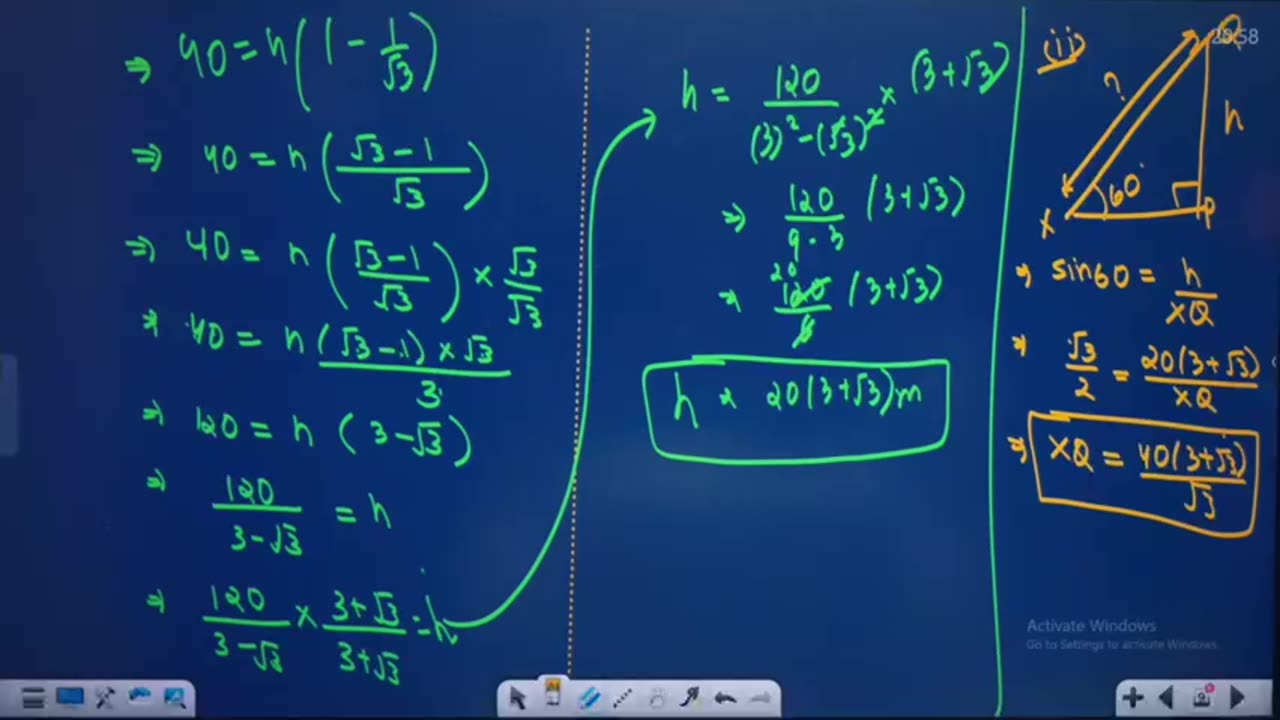 ⇒ 40 = h(1 - 1/√3)
⇒ 40 = h((√3-1)/√3)
⇒ 40 = h((√3-1)/√3) × √3/√3
⇒ 40 = h (√3-1)×√3/3
⇒ 120 = h (3-√3)
⇒ 120/(3-√3) = h
⇒ 120/(3-√3) × (3+√3)/(3+√3) = h
h = 120/((3)²-(√3)²) × (3+√3)
⇒ 120/(9-3) (3+√3)
⇒ 20 120/6 (3+√3)
h = 20(3+√3)m
(ii)
20:58
Q
?
h
60°
X
P
⇒ sin60 = h/XQ
⇒ √3/2 = 20(3+√3)/XQ
⇒ XQ = 40(3+√3)/√3
Activate Windows
Go to Settings to activate Windows.